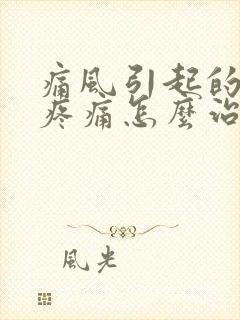 痛風引起的
疼痛怎麼治
風光